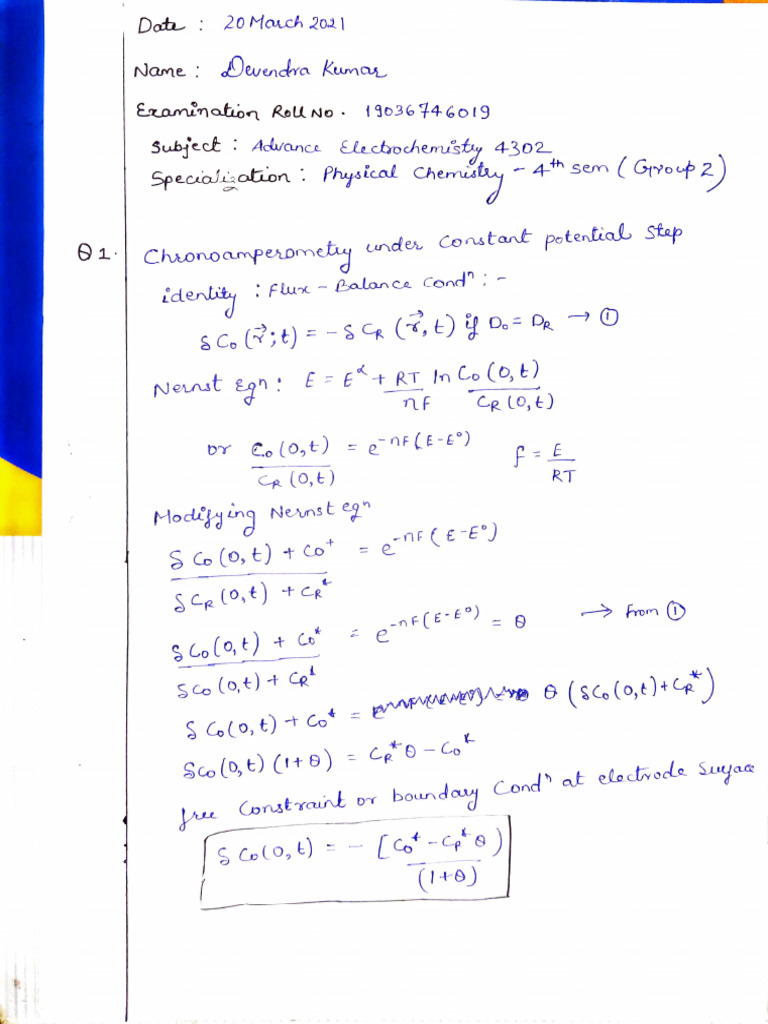 Date : 20 March 2021
Name : Devendra Kumar
Examination Roll No. 19036746019
Subject : Advance Electrochemistry 4302
Specialization : Physical Chemistry - 4th sem ( Group 2 )
Q1. Chronoamperometry under constant potential step
identity : Flux - Balance Condⁿ : -
δ C₀ (r⃗; t) = - δ C_R (r⃗, t) if D₀ = D_R → ①
Nernst Eqn : E = E^α + RT/nF ln C₀ (0, t)/C_R (0, t)
or C₀ (0, t)/C_R (0, t) = e^-nF(E-E°) f = E/RT
Modifying Nernst eqⁿ
δ C₀ (0, t) + C₀⁺ / δ C_R (0, t) + C_R* = e^-nF(E-E°)
δ C₀ (0, t) + C₀* / δ C₀ (0, t) + C_R* = e^-nF(E-E°) = θ → from ①
δ C₀ (0, t) + C₀* = θ ( δ C₀ (0, t) + C_R* )
δ C₀ (0, t) (1 + θ) = C_R* θ - C₀*
free Constraint or boundary Condⁿ at electrode Surface
δ C₀ (0, t) = - [ C₀* - C_R* θ ) / (1 + θ)